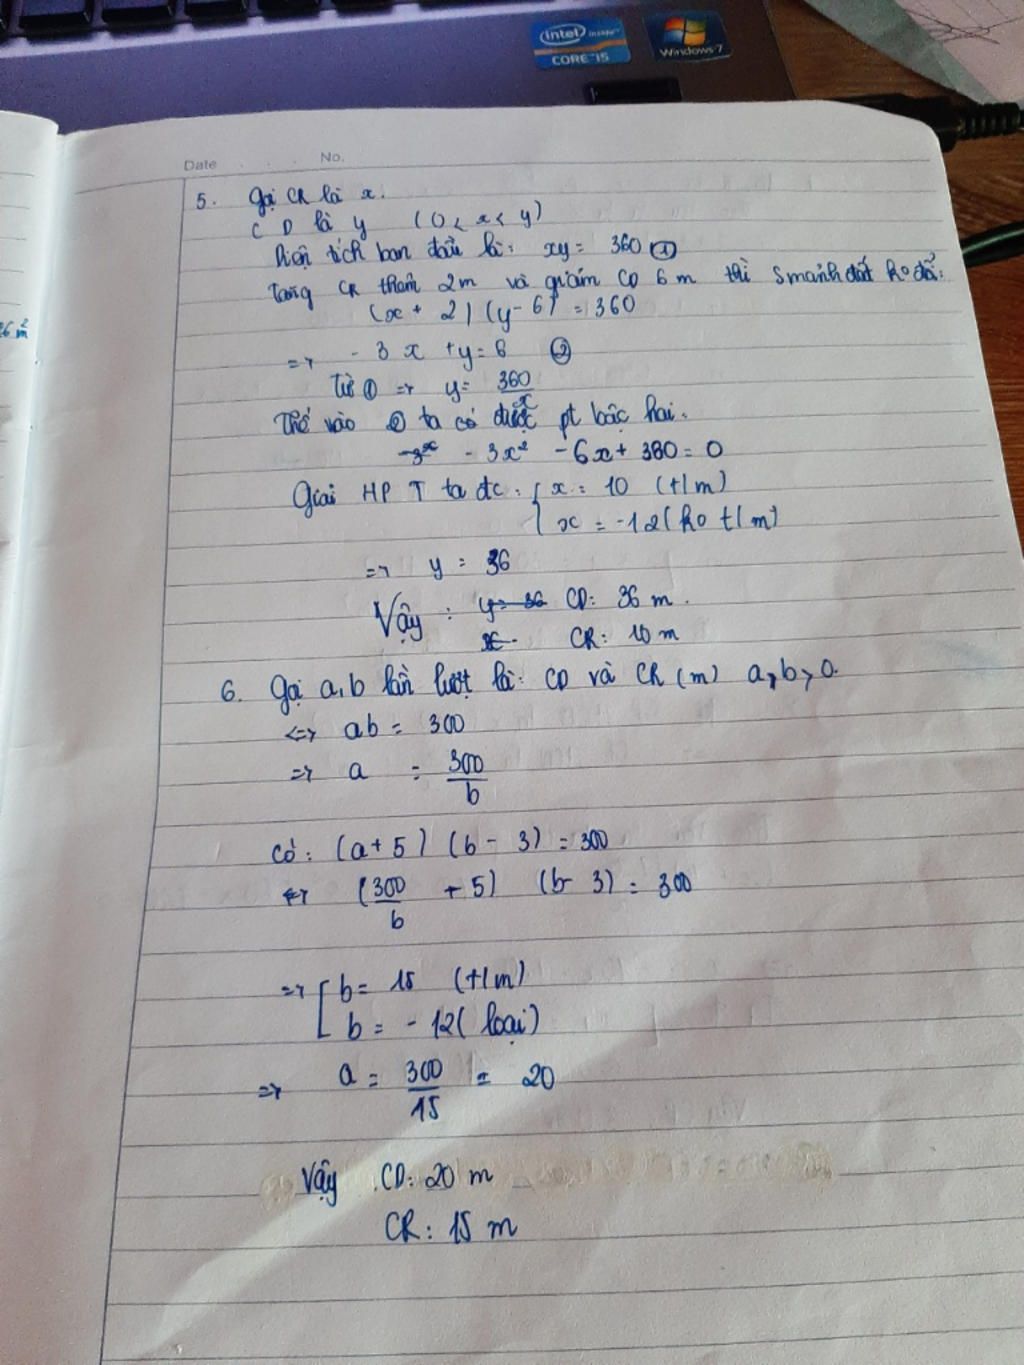 intel inside™
CORE™ i5
Windows 7
Date . . . No.
26 m²
5. Gọi CR là x.
CD là y (0 < x < y)
Diện tích ban đầu là: xy = 360 ①
Tăng CR thêm 2m và giảm CD 6 m thì S mảnh đất ko đổi:
(x + 2) (y - 6) = 360
=> - 3 x + y = 6 ②
Từ ① => y = 360/x
Thế vào ② ta có được pt bậc hai.
- 3x² - 6x + 360 = 0
Giải HPT ta đc: { x = 10 (t/m)
x = -12 (ko t/m)
=> y = 36
Vậy : y = 36 CD: 36 m.
x CR: 10 m
6. Gọi a, b lần lượt là: CD và CR (m) a, b > 0.
<=> ab = 300
=> a = 300/b
Có: (a + 5) (b - 3) = 300
<=> (300/b + 5) (b - 3) = 300
=> [ b = 15 (t/m)
b = - 12 ( loại)
=> a = 300/15 = 20
Vậy CD: 20 m
CR: 15 m